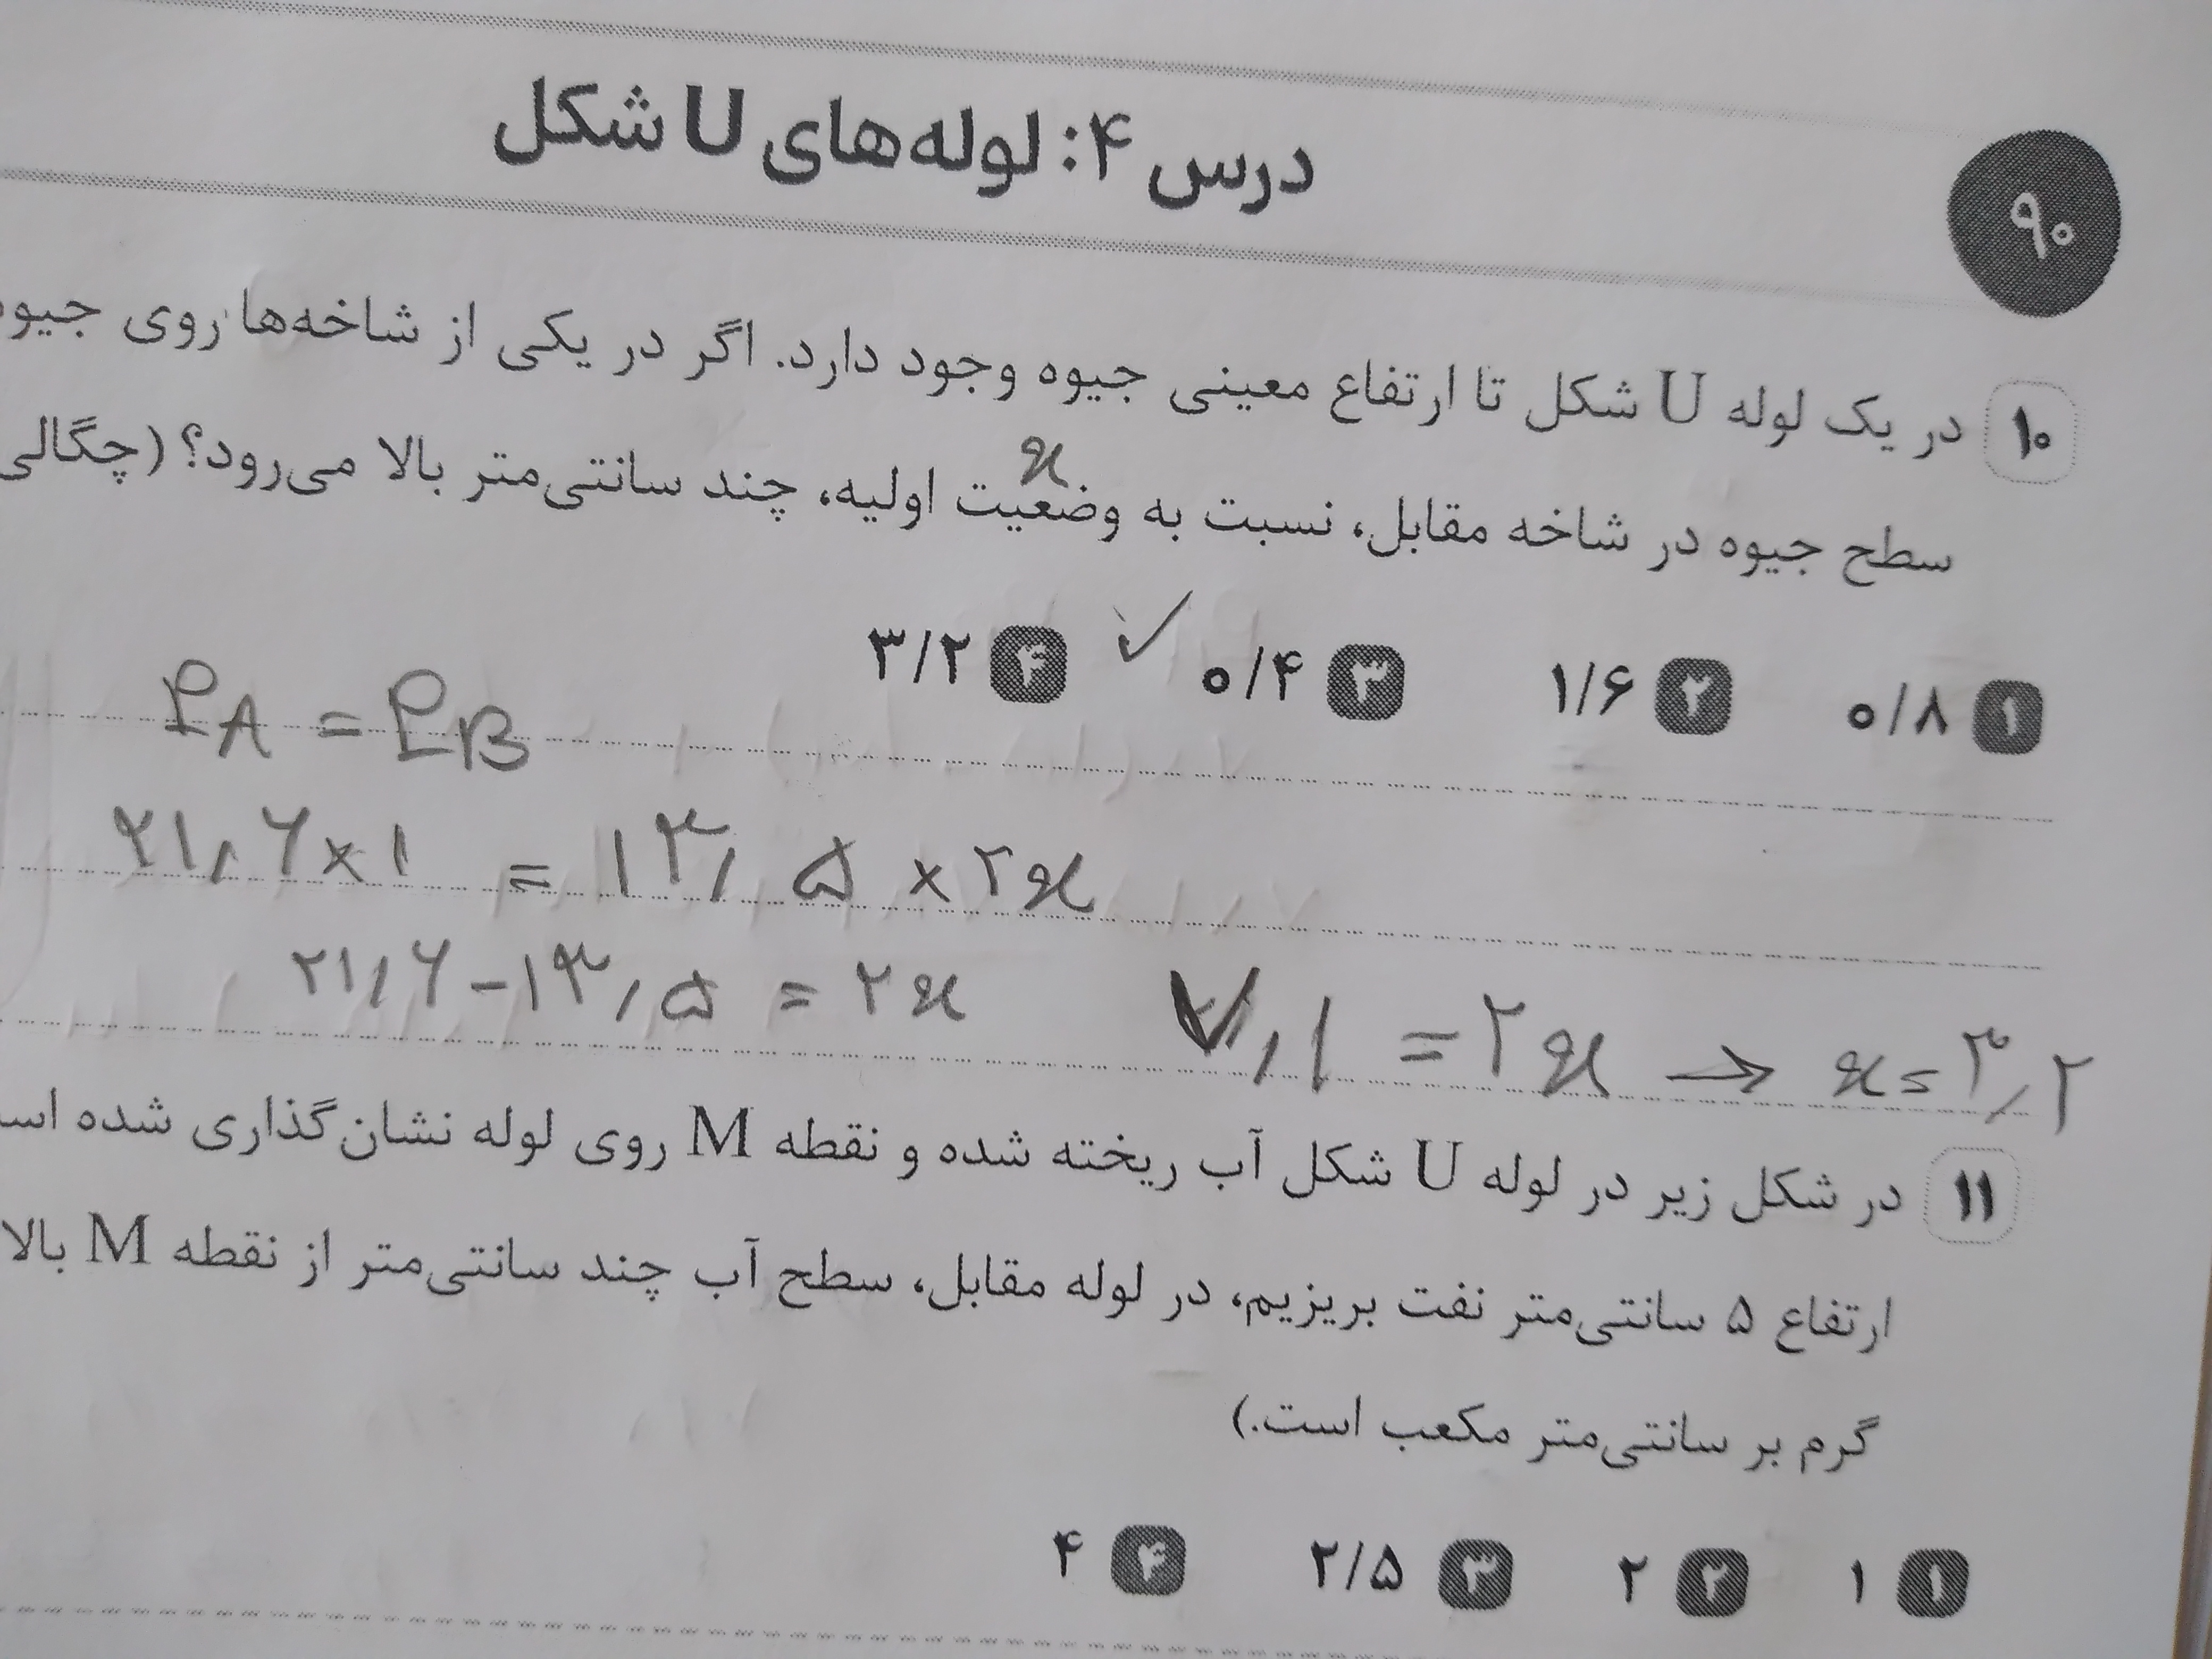 درس ۴: لوله‌های U شکل
۹۰
۱۰ در یک لوله U شکل تا ارتفاع معینی جیوه وجود دارد. اگر در یکی از شاخه‌ها روی جیوه
x
سطح جیوه در شاخه مقابل، نسبت به وضعیت اولیه، چند سانتی‌متر بالا می‌رود؟ (چگالی
۱ ۰/۸ ۲ ۱/۶ ۳ ۰/۴ ✓ ۴ ۳/۲
PA = PB
۲۱٫۶ × ۱ = ۱۳٫۵ × ۲x
۲۱٫۶ - ۱۳٫۵ = ۲x ۷٫۱ = ۲x → x = ۳٫۲
۱۱ در شکل زیر در لوله U شکل آب ریخته شده و نقطه M روی لوله نشان‌گذاری شده اس
ارتفاع ۵ سانتی‌متر نفت بریزیم، در لوله مقابل، سطح آب چند سانتی‌متر از نقطه M بالا
گرم بر سانتی‌متر مکعب است.)
۱ ۱ ۲ ۲ ۳ ۲/۵ ۴ ۴